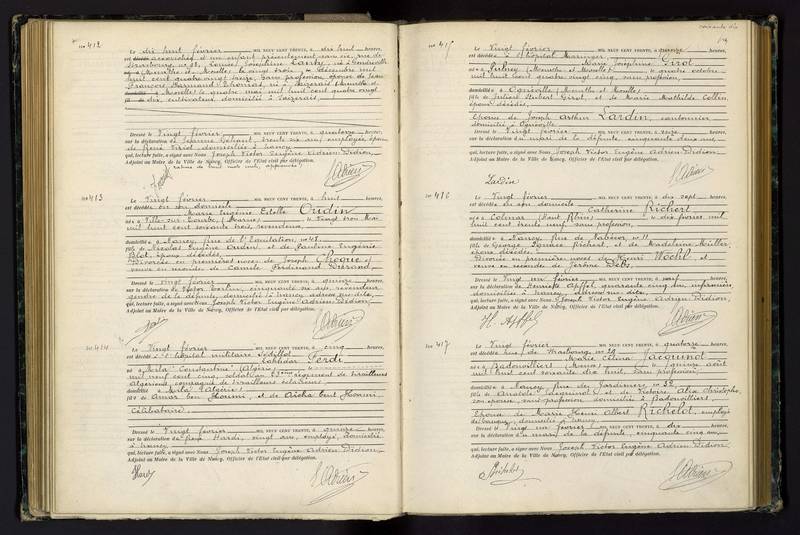 No 412
Le dix huit février MIL NEUF CENT TRENTE, à dix huit heures,
est accouchée d'un enfant présentement sans vie, rue de
Strasbourg
(Meurthe et Moselle) le vingt trois décembre mil
huit cent quatre vingt treize, sans profession, épouse de Jean
François Thomas, né à Velle (Meurthe et
Moselle) le quatre mai mil huit cent quatre vingt
dix, cultivateur domicilié à
Dressé le Vingt février MIL NEUF CENT TRENTE, à quatorze heures,
sur la déclaration de Jeanne trente six ans, employée, épouse
de René domiciliée à Nancy
qui, lecture faite, a signé avec Nous Joseph Victor Eugène Adrien Didion,
Adjoint au Maire de la Ville de Nancy, Officier de l'Etat civil par délégation.
No 413
Le Vingt février MIL NEUF CENT TRENTE, à huit heures,
est décédée en son domicile
Marie Eugénie Estelle Oudin
née à Ville-sur-Tourbe, (Marne) le vingt trois Mai
mil huit cent soixante trois, revendeuse,
domiciliée à Nancy, Rue de l'Equitation, no 47,
fille de Nicolas Eugène Oudin et de Pauline Eugénie
Blot, époux décédés,
Divorcée en premières noces de Joseph Choque et
veuve en secondes de Camille Ferdinand Durand,
Dressé le vingt février MIL NEUF CENT TRENTE, à quinze heures,
sur la déclaration de Victor cinquante six ans, revendeur,
gendre de la défunte, domicilié à Nancy adresse sus dite,
qui, lecture faite, a signé avec Nous Joseph Victor Eugène Adrien Didion,
Adjoint au Maire de la Ville de Nancy, Officier de l'Etat civil par délégation.
No 414
Le Vingt février MIL NEUF CENT TRENTE, à cinq heures,
est décédé à l'hôpital militaire Sédillot
Lakhdar Ferdi
né à Mila Constantine (Algérie)
mil neuf cent cinq, soldat au régiment de tirailleurs
algériens,
domicilié à Mila (Algérie)
fils de Amar ben Houmi, et de Aïcha bent Houmi,
Célibataire.
Dressé le Vingt février MIL NEUF CENT TRENTE, à quinze heures,
sur la déclaration de Hardy, vingt ans, employé, domicilié
à Nancy
qui, lecture faite, a signé avec Nous Joseph Victor Eugène Adrien Didion,
Adjoint au Maire de la Ville de Nancy, Officier de l'Etat civil par délégation.
Hardy
No 415
Le Vingt février MIL NEUF CENT TRENTE, à quinze heures,
est décédée à l'hôpital Maringer,
Marie Joséphine Girot
née à (Meurthe et Moselle) le quatre octobre
mil huit cent quatre vingt cinq, sans profession,
domiciliée à Ognéville (Meurthe et Moselle)
fille de Hubert Girot, et de Marie Mathilde Collin,
époux décédés,
Epouse de Joseph Arthur Lardin, cantonnier
domicilié à Ognéville
Dressé le Vingt février MIL NEUF CENT TRENTE, à seize heures,
sur la déclaration du mari de la défunte, cinquante deux ans
qui, lecture faite, a signé avec Nous Joseph Victor Eugène Adrien Didion,
Adjoint au Maire de la Ville de Nancy, Officier de l'Etat civil par délégation.
Lardin
No 416
Le Vingt février MIL NEUF CENT TRENTE, à dix sept heures,
est décédée en son domicile
Catherine Richert
née à Colmar (Haut Rhin) le dix février mil
huit cent trente neuf, sans profession,
domiciliée à Nancy, Rue de Nabécor, no 11
fille de George Ignace Richert, et de Madeleine Müller,
époux décédés
Divorcée en premières noces de Henri Wöchl et
veuve en secondes de Jérôme Debs,
Dressé le Vingt un février MIL NEUF CENT TRENTE, à neuf heures,
sur la déclaration de Henriette Apffel, quarante cinq ans, infirmière,
domiciliée à Nancy, adresse sus dite,
qui, lecture faite, a signé avec Nous Joseph Victor Eugène Adrien Didion,
Adjoint au Maire de la Ville de Nancy, Officier de l'Etat civil par délégation.
H. Apffel
No 417
Le Vingt février MIL NEUF CENT TRENTE, à quatorze heures,
est décédée Rue de Strasbourg no 29
Marie Célina Jacquinot
née à Badonvilliers (Meuse) le quinze août
mil huit cent soixante dix huit, sans profession,
domiciliée à Nancy, Rue des Jardiniers, no 32,
fille de Anatole Jacquinot, et de Victoire Alix Christophe,
son épouse, sans profession domiciliée à Badonvilliers,
Epouse de Marie Henri Albert Richelot, employé
de banque, domicilié à Nancy
Dressé le Vingt un février MIL NEUF CENT TRENTE, à dix heures,
sur la déclaration du mari de la défunte, cinquante cinq ans
qui, lecture faite, a signé avec Nous Joseph Victor Eugène Adrien Didion
Adjoint au Maire de la Ville de Nancy, Officier de l'Etat civil par délégation.
Richelot